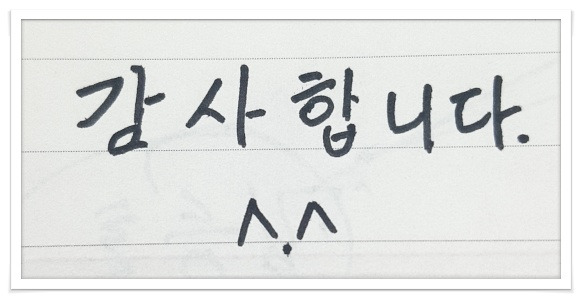 감사합니다.
^.^